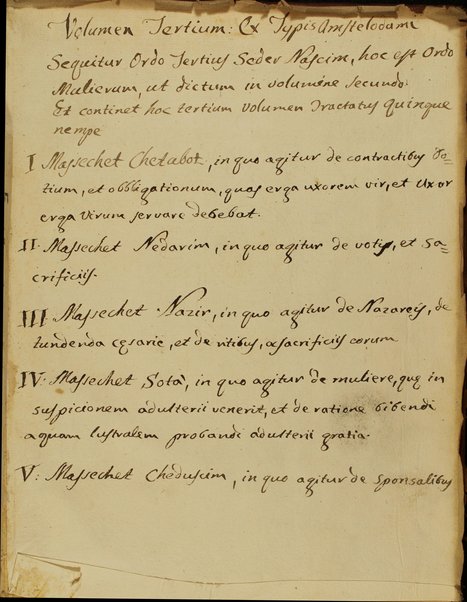 Volumen Tertium: Ex Typis Amstelodami
Sequitur Ordo Tertius Seder Nascim, hoc est Ordo
Mulierum, ut dictum in volumine secundo.
Et continet hoc tertium volumen Tractatus Quinque
nempe
I Massechet Chetabot, in quo agitur de contractibus do=
tium, et obbligationum, quas erga uxorem vir, et Uxor
erga Virum servare debebat.
II. Massechet Nedarim, in quo agitur de votis, et Sa=
crificiis.
III Massechet Nazir, in quo agitur de Nazareis, de
tundenda cęsarie, et de ritibus, ac sacrificiis eorum
IV. Massechet Sotà, in quo agitur de muliere, quę in
suspicionem adulterii venerit, et de ratione bibendi
aquam lustralem probandi adulterii gratia.
V: Massechet Cheduscim, in quo agitur de Sponsalibus